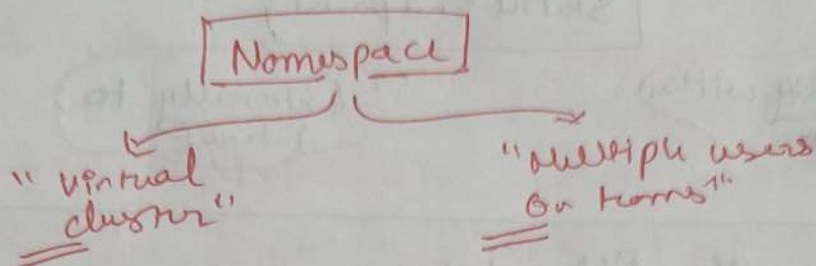 Namespace
"virtual
cluster"
"Multiple users
or teams"